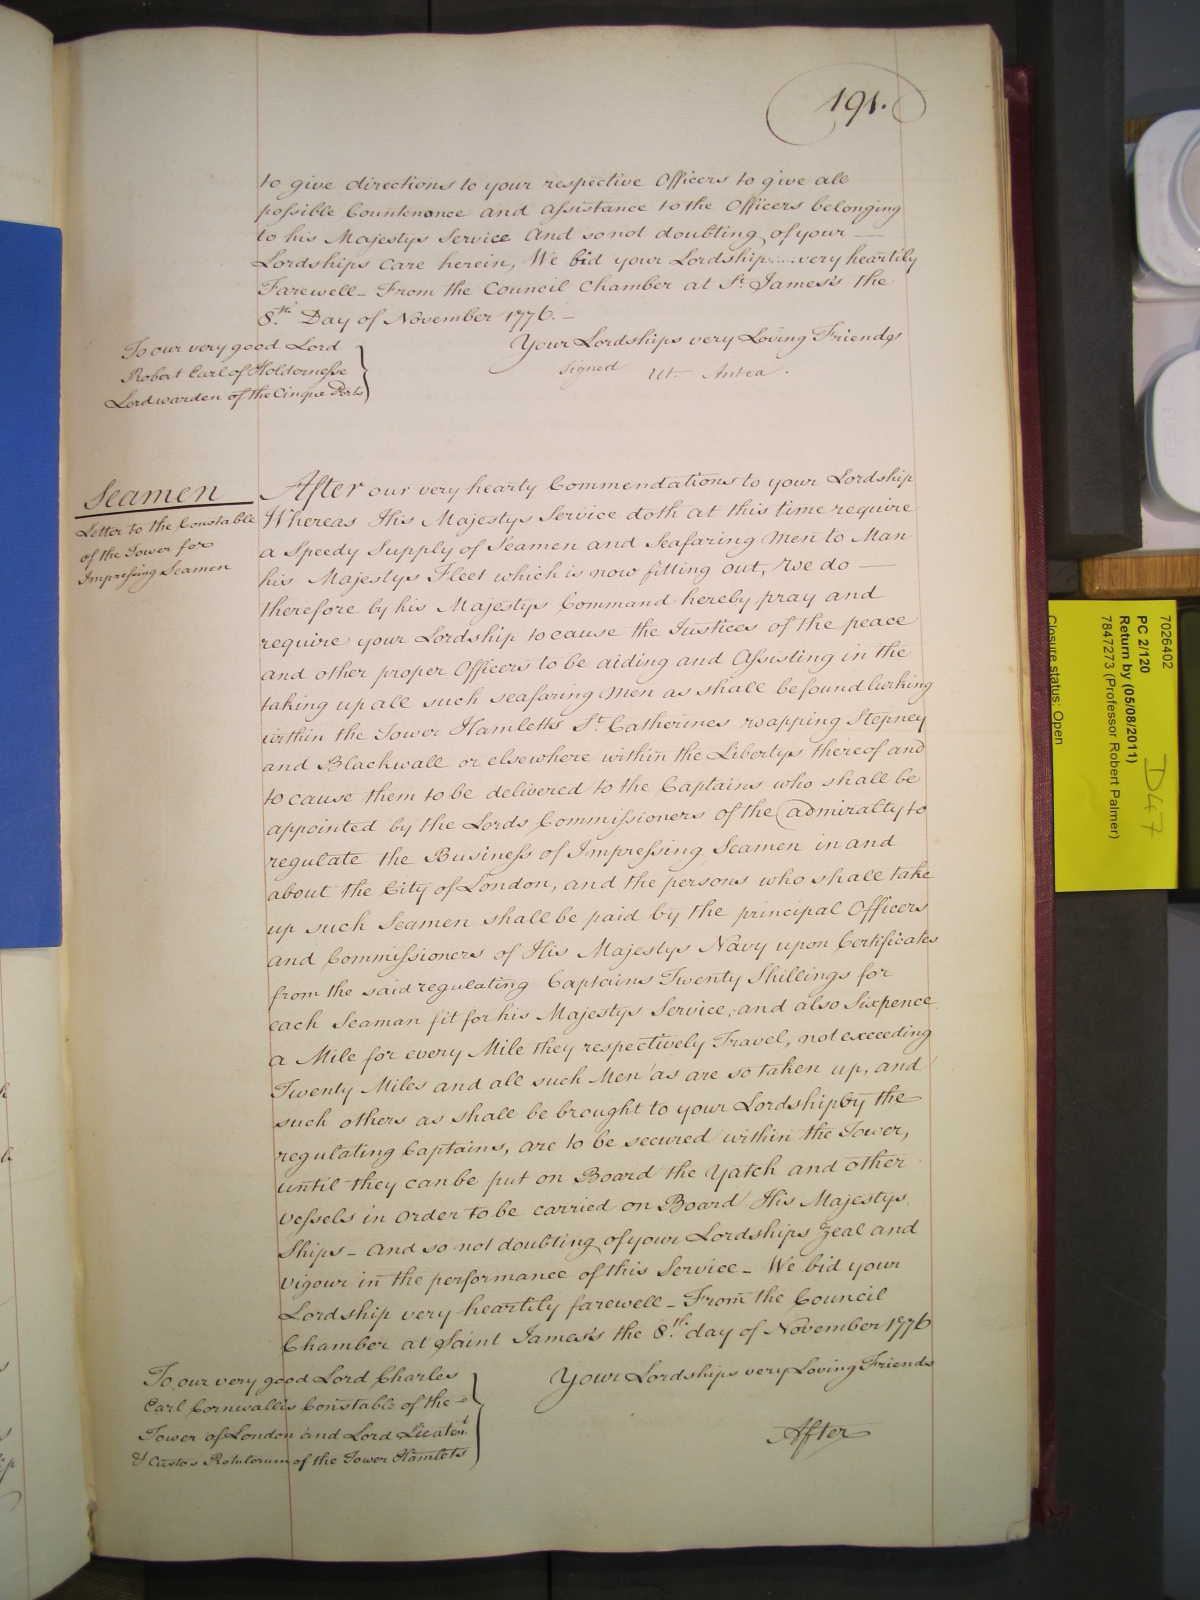 191.
to give directions to your respective Officers to give all
possible Countenance and Assistance to the Officers belonging
to his Majestys Service And so not doubting of your —
Lordships Care herein, We bid your Lordship..... very heartily
Farewell – From the Council Chamber at St. James's the
8.th Day of November 1776. –
To our very good Lord
Robert Earl of Holdernesse
Lord warden of the Cinque Ports
Your Lordships very Loving Friends
Signed Ut Antea.
Seamen
Letter to the Constable
of the Tower for
Impressing Seamen
After our very hearty Commendations to your Lordship
Whereas His Majestys Service doth at this time require
a Speedy Supply of Seamen and Seafaring Men to Man
his Majestys Fleet which is now fitting out, We do —
therefore by his Majestys Command hereby pray and
require your Lordship to cause the Justices of the peace
and other proper Officers to be aiding and Assisting in the
taking up all such seafaring Men as shall be found lurking
within the Tower Hamletts St. Catherines wapping Stepney
and Blackwall or elsewhere within the Libertys thereof and
to cause them to be delivered to the Captains who shall be
appointed by the Lords Commissioners of the Admiralty to
regulate the Business of Impressing Seamen in and
about the City of London, and the persons who shall take
up such Seamen shall be paid by the principal Officers
and Commissioners of His Majestys Navy upon Certificates
from the said regulating Captains Twenty Shillings for
each Seaman fit for his Majestys Service, and also Sixpence
a Mile for every Mile they respectively Travel, not exceeding
Twenty Miles and all such Men as are so taken up, and
such others as shall be brought to your Lordship by the
regulating Captains, are to be secured within the Tower,
until they can be put on Board the Yatch and other
vessels in order to be carried on Board His Majestys
Ships – And so not doubting of your Lordships Zeal and
vigour in the performance of this Service – We bid your
Lordship very heartily farewell – From the Council
Chamber at Saint James's the 8.th day of November 1776
To our very good Lord Charles
Earl Cornwallis Constable of the
Tower of London and Lord Lieutent.
& Custos Rotulorum of the Tower Hamlets
Your Lordships very Loving Friends
After
7026402
PC 2/120
Return by (05/08/2011)
7847273 (Professor Robert Palmer)
Closure status: Open
D47